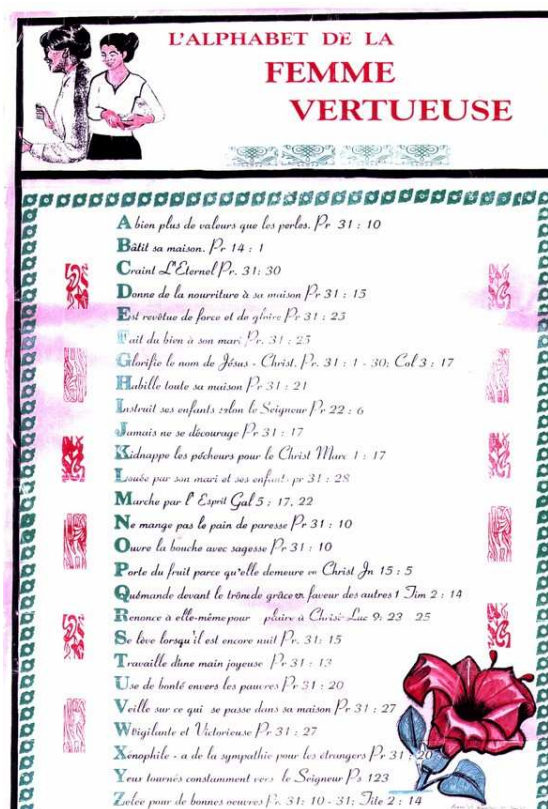 L'ALPHABET DE LA
FEMME
VERTUEUSE
A bien plus de valeurs que les perles. Pr 31 : 10
Bâtit sa maison. Pr 14 : 1
Craint L'Eternel Pr. 31: 30
Donne de la nourriture à sa maison Pr 31 : 15
Est revêtue de force et de gloire Pr 31 : 25
Fait du bien à son mari Pr. 31 : 23
Glorifie le nom de Jésus - Christ. Pr. 31 : 1 - 30; Col 3 : 17
Habille toute sa maison Pr 31 : 21
Instruit ses enfants selon le Seigneur Pr 22 : 6
Jamais ne se décourage Pr 31 : 17
Kidnappe les pécheurs pour le Christ Marc 1 : 17
Louée par son mari et ses enfants pr 31 : 28
Marche par l' Esprit Gal 5 : 17, 22
Ne mange pas le pain de paresse Pr 31 : 10
Ouvre la bouche avec sagesse Pr 31 : 10
Porte du fruit parce qu'elle demeure en Christ Jn 15 : 5
Quémande devant le trône de grâce en faveur des autres 1 Tim 2 : 14
Renonce à elle-même pour plaire à Christ Luc 9: 23 25
Se lève lorsqu'il est encore nuit Pr. 31: 15
Travaille d'une main joyeuse Pr 31 : 13
Use de bonté envers les pauvres Pr 31 : 20
Veille sur ce qui se passe dans sa maison Pr 31 : 27
Wigilante et Victorieuse Pr 31 : 27
Xénophile - a de la sympathie pour les étrangers Pr 31 : 20
Yeux tournés constamment vers le Seigneur Ps 123
Zélée pour de bonnes oeuvres Pr 31: 10 - 31; Tite 2 : 14